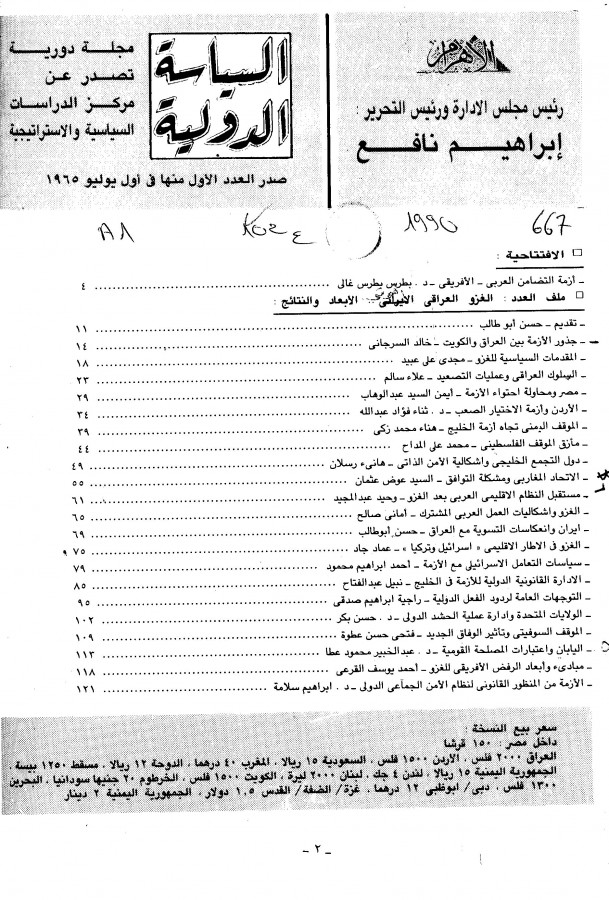 الأهرام
رئيس مجلس الإدارة ورئيس التحرير :
إبراهيم نافع
السياسة
الدولية
مجلة دورية
تصدر عن
مركز الدراسات
السياسية والاستراتيجية
صدر العدد الأول منها فى أول يوليو ١٩٦٥
A1
1990
667
□ الافتتاحية :
ـ أزمة التضامن العربى ـ الأفريقى ـ د . بطرس بطرس غالى ٤
□ ملف العدد : الغزو العراقى الأبعاد والنتائج :
ـ تقديم ـ حسن أبو طالب ١١
ـ جذور الأزمة بين العراق والكويت ـ خالد السرجانى ١٤
ـ المقدمات السياسية للغزو ـ مجدى على عبيد ١٨
ـ السلوك العراقى وعمليات التصعيد ـ علاء سالم ٢٣
ـ مصر ومحاولة احتواء الأزمة ـ أيمن السيد عبدالوهاب ٢٩
ـ الأردن وأزمة الاختيار الصعب ـ د . ثناء فؤاد عبدالله ٣٤
ـ الموقف اليمنى تجاه أزمة الخليج ـ هناء محمد زكى ٣٩
ـ مأزق الموقف الفلسطينى ـ محمد على المداح ٤٤
ـ دول التجمع الخليجى واشكالية الأمن الذاتى ـ هانىء رسلان ٤٩
ـ الاتحاد المغاربى ومشكلة التوافق ـ السيد عوض عثمان ٥٥
ـ مستقبل النظام الاقليمى العربى بعد الغزو ـ وحيد عبدالمجيد ٦١
ـ الغزو واشكاليات العمل العربى المشترك ـ أمانى صالح ٦٥
ـ ايران وانعكاسات التسوية مع العراق ـ حسن أبوطالب ٦٩
ـ الغزو فى الاطار الاقليمى « اسرائيل وتركيا » ـ عماد جاد ٧٥
ـ سياسات التعامل الاسرائيلى مع الأزمة ـ أحمد ابراهيم محمود ٧٩
ـ الادارة القانونية الدولية للأزمة فى الخليج ـ نبيل عبدالفتاح ٨٥
ـ التوجهات العامة لردود الفعل الدولية ـ راجية ابراهيم صدقى ٩٥
ـ الولايات المتحدة وادارة عملية الحشد الدولى ـ د . حسن بكر ١٠٢
ـ الموقف السوفيتى وتأثير الوفاق الجديد ـ فتحى حسن عطوة ١٠٩
ـ اليابان واعتبارات المصلحة القومية ـ د . عبدالخبير محمود عطا ١١٣
ـ مبادىء وأبعاد الرفض الأفريقى للغزو ـ أحمد يوسف القرعى ١١٨
ـ الأزمة من المنظور القانونى لنظام الأمن الجماعى الدولى ـ د . ابراهيم سلامة ١٢١
سعر بيع النسخة :
داخل مصر : ١٥٠ قرشا
العراق ٢٠٠٠ فلس ، الأردن ١٥٠٠ فلس ، السعودية ١٥ ريالا ، المغرب ٤٠ درهما ، الدوحة ١٢ ريالا ، مسقط ١٢٥٠ بيسة ،
الجمهورية اليمنية ١٥ ريالا ، لندن ٤ جك ، لبنان ٢٠٠٠ ليرة ، الكويت ١٥٠٠ فلس ، الخرطوم ٢٠ جنيها سودانيا ، البحرين
١٣٠٠ فلس ، دبى/ ابوظبى ١٢ درهما ، غزة/ الضفة/ القدس ١,٥ دولار ، الجمهورية اليمنية ٢ دينار
ـ ٢ ـ